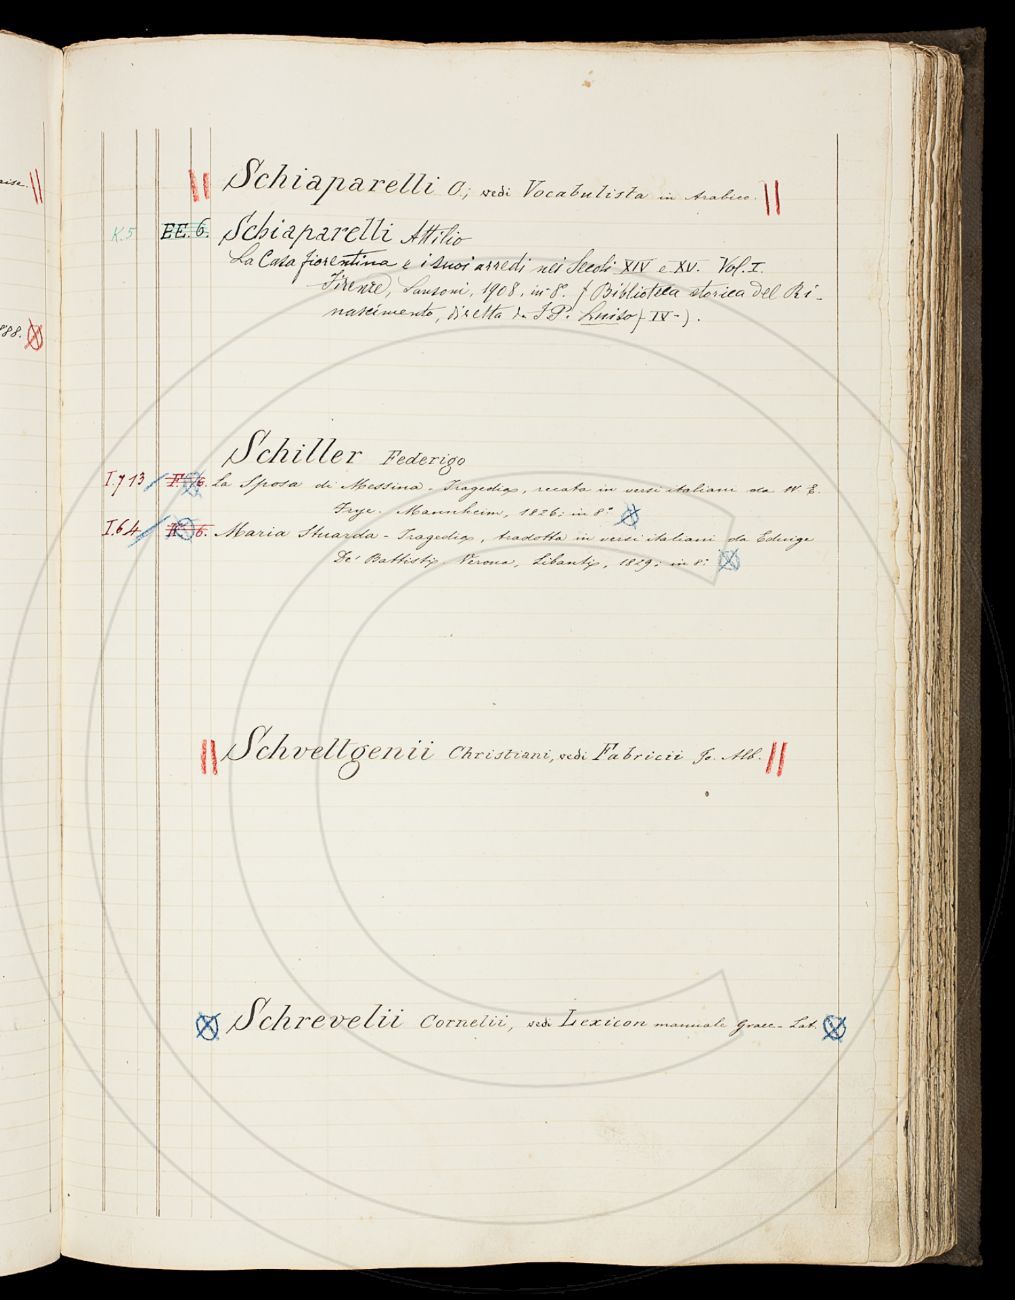 aise.
Schiaparelli O; vedi Vocabulista in Arabico.
K.5 EE. 6. Schiaparelli Attilio
La Casa fiorentina e i suoi arredi nei Secoli XIV e XV. Vol. I.
Firenze, Sansoni, 1908, in 8°. (Biblioteca storica del Ri-
nascimento, diretta da F. P. Luiso (IV-).
888.
Schiller Federigo
I.713 F 6. La Sposa di Messina - Tragedia, recata in versi italiani da W. E.
Frye. Mannheim, 1826; in 8°
I.64 6. Maria Stuarda - Tragedia, tradotta in versi italiani da Edvige
De' Battisti. Verona, Libanti, 1829; in 8°
Schvettgenii Christiani, vedi Fabricii Jo. Alb.
Schrevelii Cornelii, vedi Lexicon manuale Graec-Lat.